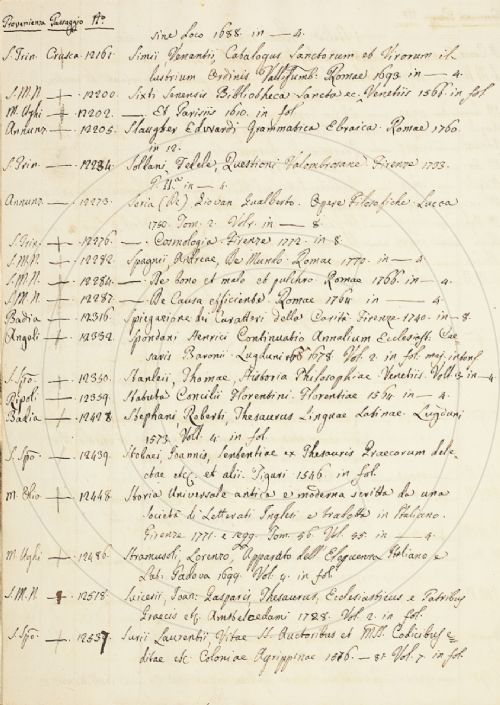 Provenienza Passaggio N.o
sine Loco 1688. in — 4.
S. Trin. Crusca 12161. Simii Venantii, Catalogus Sanctorum et Virorum il-
lustrium Ordinis Vallisumb. Romae 1693 in — 4.
S. M. N. + 12200. Sixti Senensis Bibliotheca Sancta ec. Venetiis 1566. in fol
M. Ughi + 12202. — Et Parisiis 1610. in fol.
Annunz — 12205. Slaugher Edwardi Grammatica Ebraica. Romae 1760.
in 12.
S. Trin. — 12234. Soldani, Fedele, Questioni Valombrosane. Firenze 1733.
in — 4.
Annunz — 12273. Soria (De) Giovan Gualberto. Opere Filosofiche Lucca
1750. Tom. 2. Vol. in — 8.
S. Trin. + 12276. — Cosmologia. Firenze 1772. in 8.
S. M. N. + 12282. Spagni Andreae, De Mundo. Romae 1770. in — 4.
S. M. N. + 12284. — De bono et malo et pulchro. Romae 1766. in — 4.
S. M. N. + 12287. — De Causa efficiente. Romae 1764. in — 4.
Badia + 12316. Spiegazione dei Caratteri della Carità. Firenze 1740. in — 8.
Angoli + 12332. Spondani Henrici Continuatio Annalium Ecclesiast. Cae
saris Baronii. Lugduni 1678. Vol. 2. in fol.
S. Spo. + 12350. Stanleii, Thomae, Historia Philosophiae. Venetiis. Voll. 3. in — 4
Ripoli — 12359. Statuta Concilii Florentini. Florentiae 1564. in — 4.
Badia + 12428. Stephani Roberti, Thesaurus Linguae Latinae. Lugduni
1573. Voll. 4. in fol.
S. Spo. — 12439. Stobaei, Joannis, Sententiae ex Thesauris Graecorum dele
ctae etc. et alii. Tiguri 1546. in fol.
+ 12448. Storia Universale antica e moderna scritta da una
Società di Letterati Inglesi e tradotta in Italiano.
Firenze 1771. e segg. Tom. 56. Vol. in — 4.
M. Ughi + 12486. Stramusoli, Lorenzo, Apparato dell'Eloquenza Italiano, e
Lat. Padova 1699. Vol. 4. in fol.
S. M. N. 12518. Suicerii, Joan. Gasparis, Thesaurus, Ecclesiasticus e Patribus
Graecis etc. Amstelaedami 1728. Vol. 2. in fol.
S. Spo. + 12537. Surii Laurentii Vitae SS. Auctoribus et MSS. Codicibus e-
ditae etc. Coloniae Agrippinae 1576 — 81. Vol. 7. in fol.